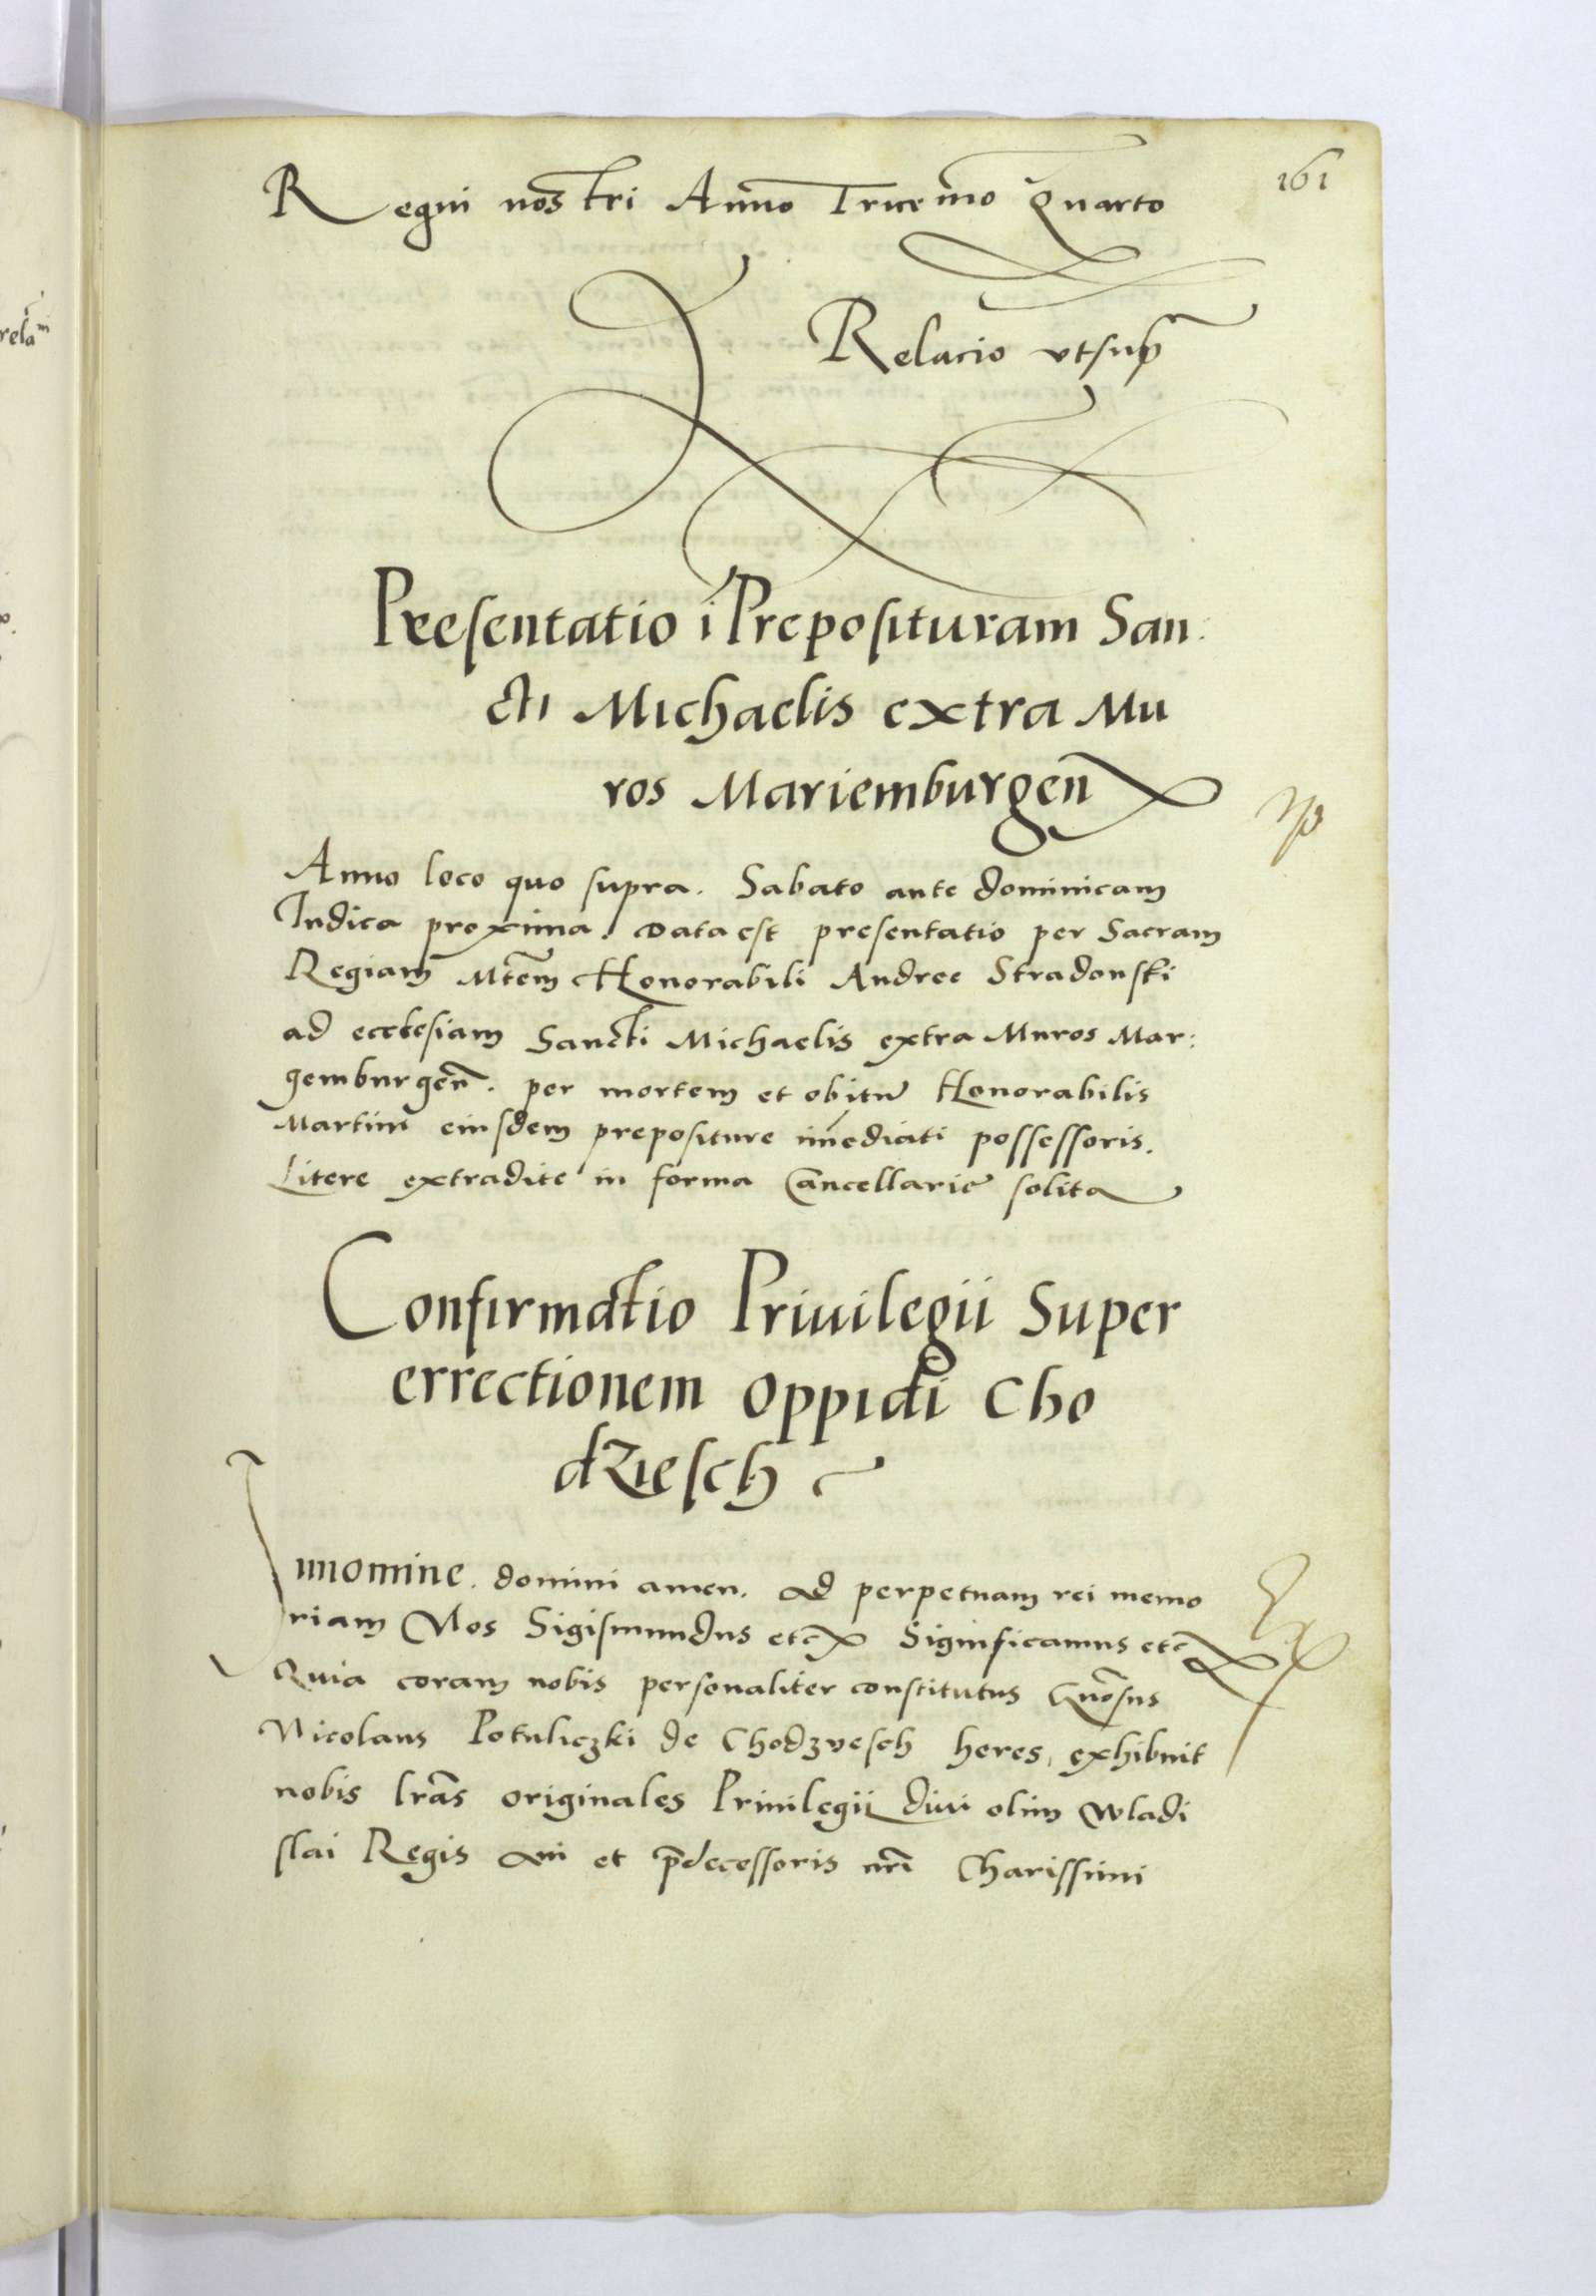 161
Regni nostri Anno Tricemo Quarto
Relacio vtsup
Presentatio i Preposituram San:
cti Michaelis extra Mu
ros Mariemburgen
Anno loco quo supra. Sabato ante dominicam
Iudica proxima. Data est presentatio per Sacram
Regiam Mtem Honorabili Andree Stradonski
ad ecclesiam Sancti Michaelis extra Muros Mar:
gemburgen. per mortem et obitu Honorabilis
Martini eiusdem prepositure imediati possessoris.
Litere extradite in forma Cancellarie solita
Confirmatio Priuilegii Super
errectionem oppidi Cho
dziesch
In nomine. domini amen. Ad perpetuam rei memo
riam Nos Sigismundus etc Significamus etc
Quia coram nobis personaliter constitutus Gnosus
Nicolaus Potuliczki de Chodzyesch heres, exhibuit
nobis lras originales Priuilegii diui olim Wladi
slai Regis aui et pdecessoris nri Charissimi